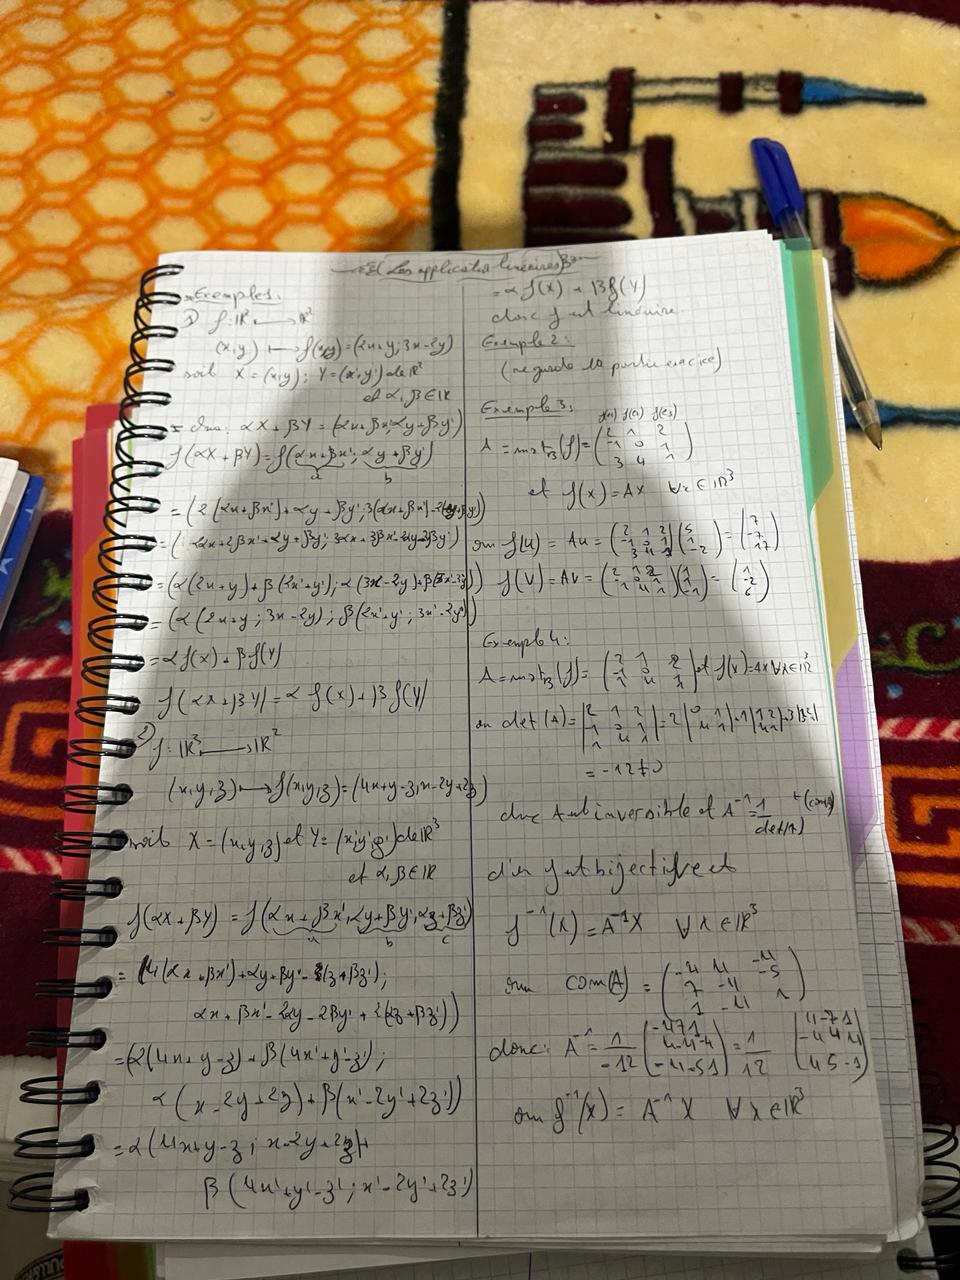 Les application linéaires
Exemples 1:
1) f: IR² → IR²
(x,y) ↦ f(x,y) = (2x+y; 3x-2y)
soit X = (x,y); Y = (x',y') de IR²
et α,β ∈ IR
αX + βY = (αx+βx'; αy+βy')
f(αX+βY) = f(αx+βx'; αy+βy')
a b
= (2(αx+βx')+αy+βy'; 3(αx+βx')-2(αy+βy'))
= (2αx+2βx'+αy+βy'; 3αx+3βx'-2αy-2βy')
= (α(2x+y)+β(2x'+y'); α(3x-2y)+β(3x'-2y'))
= (α(2x+y; 3x-2y); β(2x'+y'; 3x'-2y'))
= α f(x) + β f(Y)
f(αX+βY) = α f(x) + β f(Y)
2) f: IR³ → IR²
(x,y,z) ↦ f(x,y,z) = (4x+y-z; x-2y+2z)
soit X = (x,y,z) et Y = (x'y'z') de IR³
et α,β ∈ IR
f(αX+βY) = f(αx+βx'; αy+βy'; αz+βz')
a b c
= (4(αx+βx')+αy+βy'-(z+βz');
αx+βx'-2αy-2βy'+2(αz+βz'))
= (α(4x+y-z)+β(4x'+y'-z');
α(x-2y+2z)+β(x'-2y'+2z'))
= α(4x+y-z; x-2y+2z)+
β(4x'+y'-z'; x'-2y'+2z')
= α f(x) + β f(Y)
donc f est linéaire.
Exemple 2:
(regarde la partie exercice)
Exemple 3:
f(e1) f(e2) f(e3)
A = mat_B(f) = ( 2 1 2
-1 0 1
3 4 1 )
et f(x) = AX ∀x ∈ IR³
on f(u) = Au = ( 2 1 2 / -1 0 1 / 3 4 1 )( 5 / 1 / -2 ) = ( 7 / -7 / 17 )
f(V) = AV = ( 2 1 2 / -1 0 1 / 4 1 )( 1 / 1 / -1 ) = ( 1 / -2 / 6 )
Exemple 4:
A = mat_B(f) = ( 2 1 2 / -1 0 1 / 1 4 1 ) et f(x) = AX ∀x ∈ IR³
on det(A) = | 2 1 2 / 1 0 1 / 1 4 1 | = 2 | 0 1 / 4 1 | + 1 | 1 2 / 4 1 |
= -12 ≠ 0
donc A est inversible et A⁻¹ = 1/det(A) t(com A)
d'où f est bijective et
f⁻¹(x) = A⁻¹X ∀x ∈ IR³
on com(A) = ( -4 4 -4
7 -4 -5
1 -4 1 )
donc: A⁻¹ = 1/-12 ( -4 7 1 / 4 -4 -4 / -4 -5 1 ) = 1/12 ( 4 -7 1 / -4 4 4 / 4 5 -1 )
on f⁻¹(x) = A⁻¹ X ∀x ∈ IR³